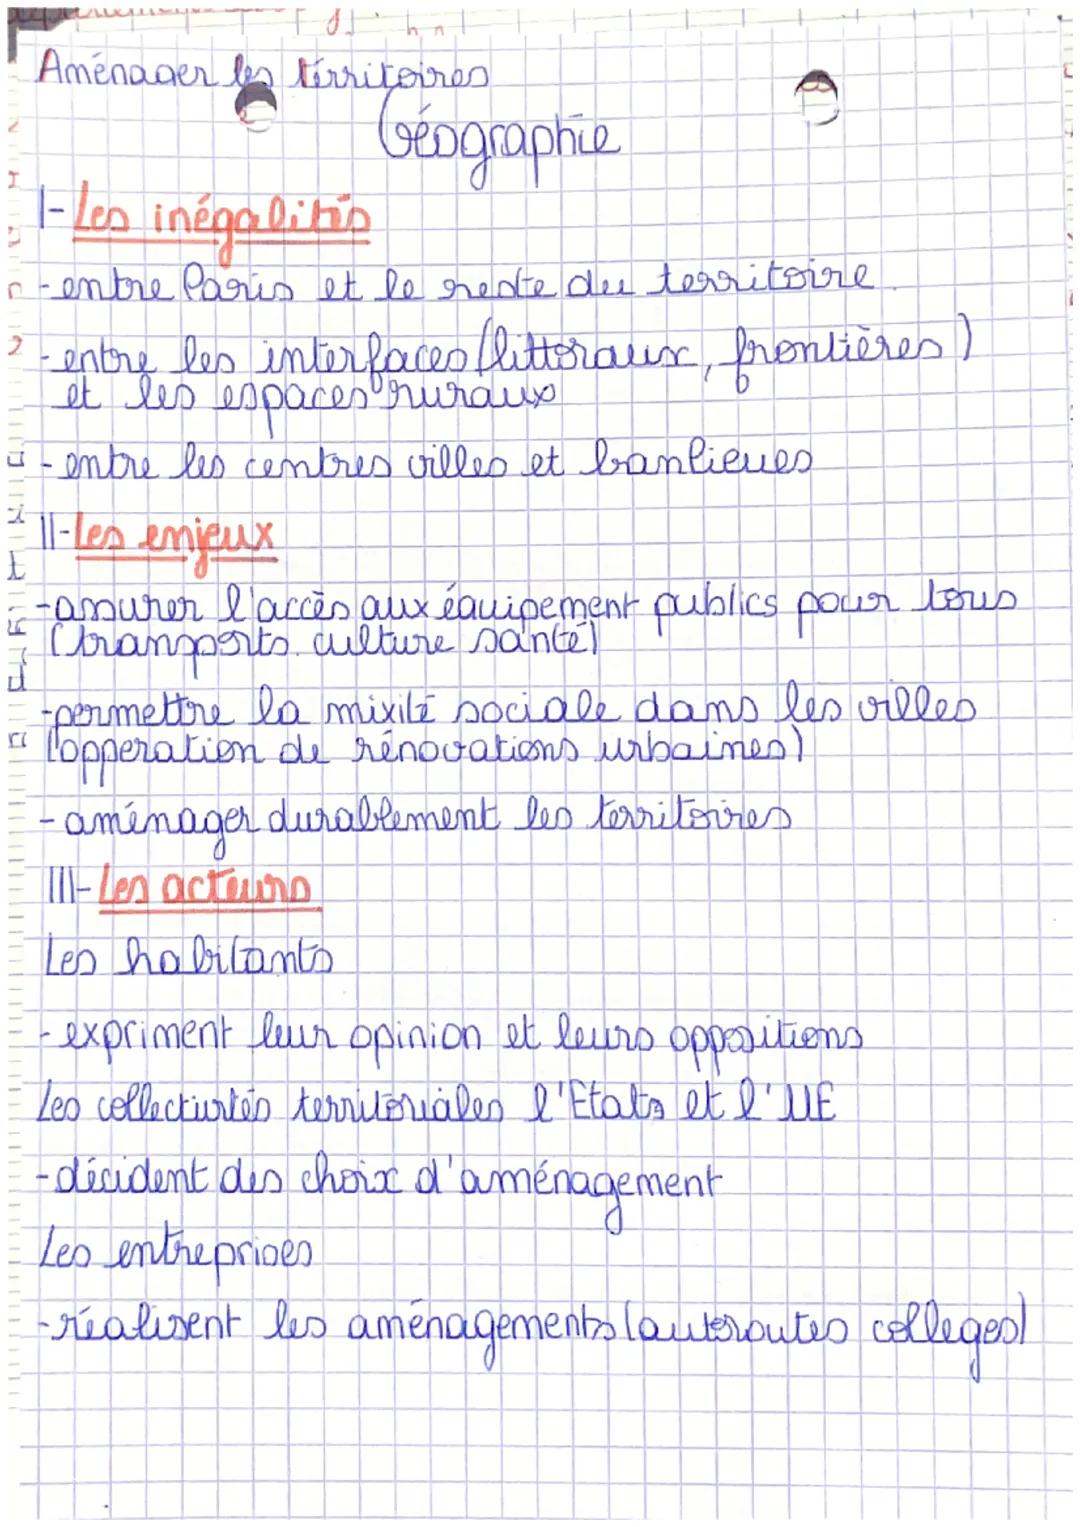 Aménager les térritoires
Géographie
I- Les inégalités
-entre Paris et le reste du territoire.
-entre les interfaces (littoraux, frontières)
et les espaces ruraux
-entre les centres villes et banlieues
II- Les enjeux
-assurer l'accès aux équipement publics pour tous
(transports. culture santé)
-permettre la mixité sociale dans les villes
(opperation de rénovations urbaines)
-aménager durablement les territoires
III- Les acteurs
Les habitants
-expriment leur opinion et leurs oppositions
Les collectivités territoriales l'Etats et l'UE
-décident des choix d'aménagement
Les entreprises
-réalisent les aménagements (autoroutes colleges)